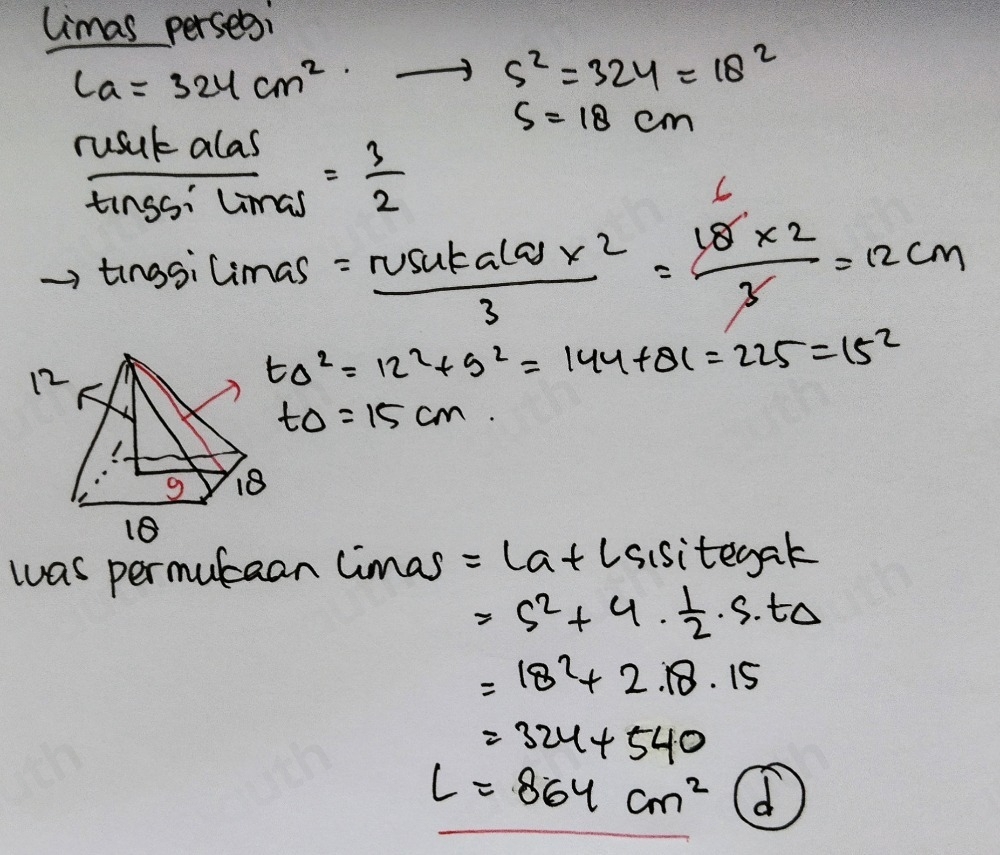 limas persegi
La = 324 cm². → s² = 324 = 18²
s = 18 cm
rusuk alas / tinggi limas = 3/2
→ tinggi limas = rusuk alas x 2 / 3 = 18 x 2 / 3 = 12 cm
6
t△² = 12² + 9² = 144 + 81 = 225 = 15²
t△ = 15 cm.
12
9
18
18
luas permukaan limas = La + L sisi tegak
= s² + 4 . 1/2 . s . t△
= 18² + 2 . 18 . 15
= 324 + 540
L = 864 cm² (d)